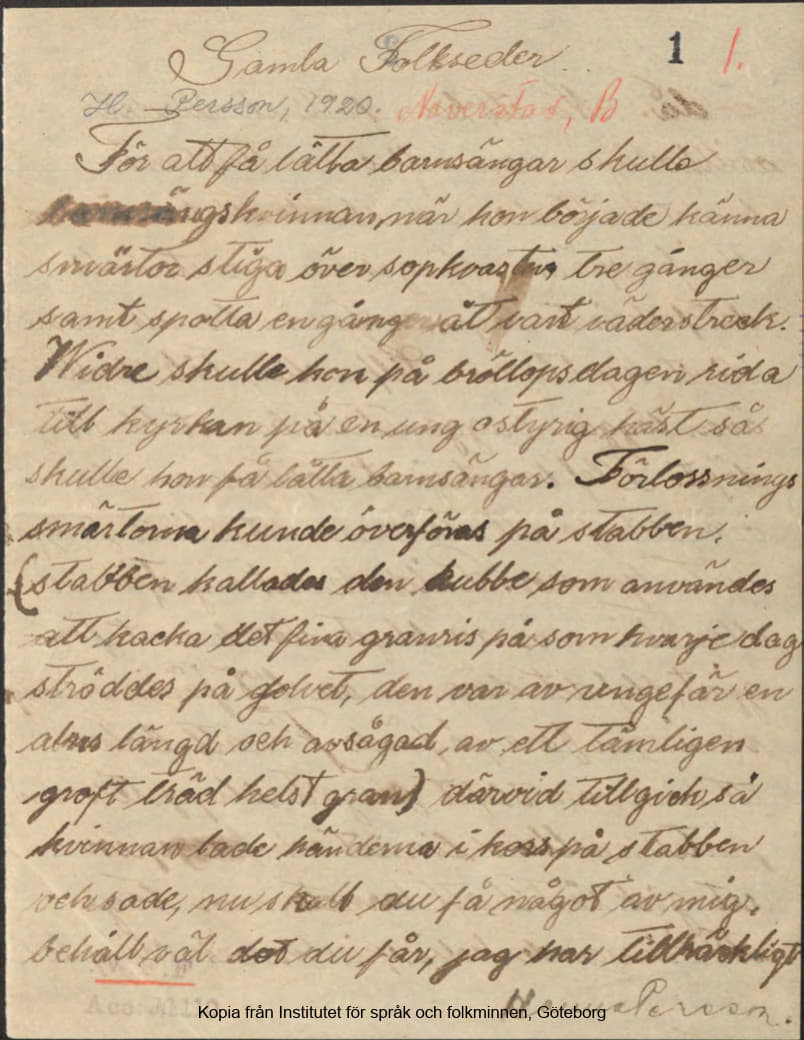 Gamla Folkseder.
1 1.
H. Persson, 1920. Naverstad, B
För att få lätta barnsängar skulle
barnsängskvinnan, när hon började känna
smärtor stiga över sopkvasten tre gånger
samt spotta en gång åt vart väderstreck.
Widre skulle hon på bröllopsdagen rida
till kyrkan på en ung ostyrig häst så
skulle hon få lätta barnsängar. Förlossnings
smärtorna kunde överföras på stabben.
(stabben kallades den kubbe som användes
att hacka det fina granris på som hvarje dag
ströddes på golvet, den var av ungefär en
alns längd och avsågad av ett tämligen
groft träd helst gran) därvid tillgick så
kvinnan lade händerna i kors på stabben
och sade, nu skall du få något av mig,
behåll väl det du får, jag har tillräckligt
Persson.
Kopia från Institutet för språk och folkminnen, Göteborg